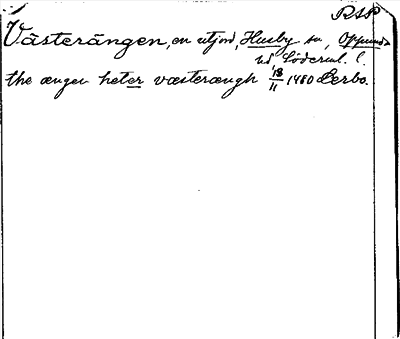 RAP
Västerängen, en utjord, Husby sn, Oppunda
hd Söderml. l.
the ænger heter væsterængh 18/11 1480 Lerbo.